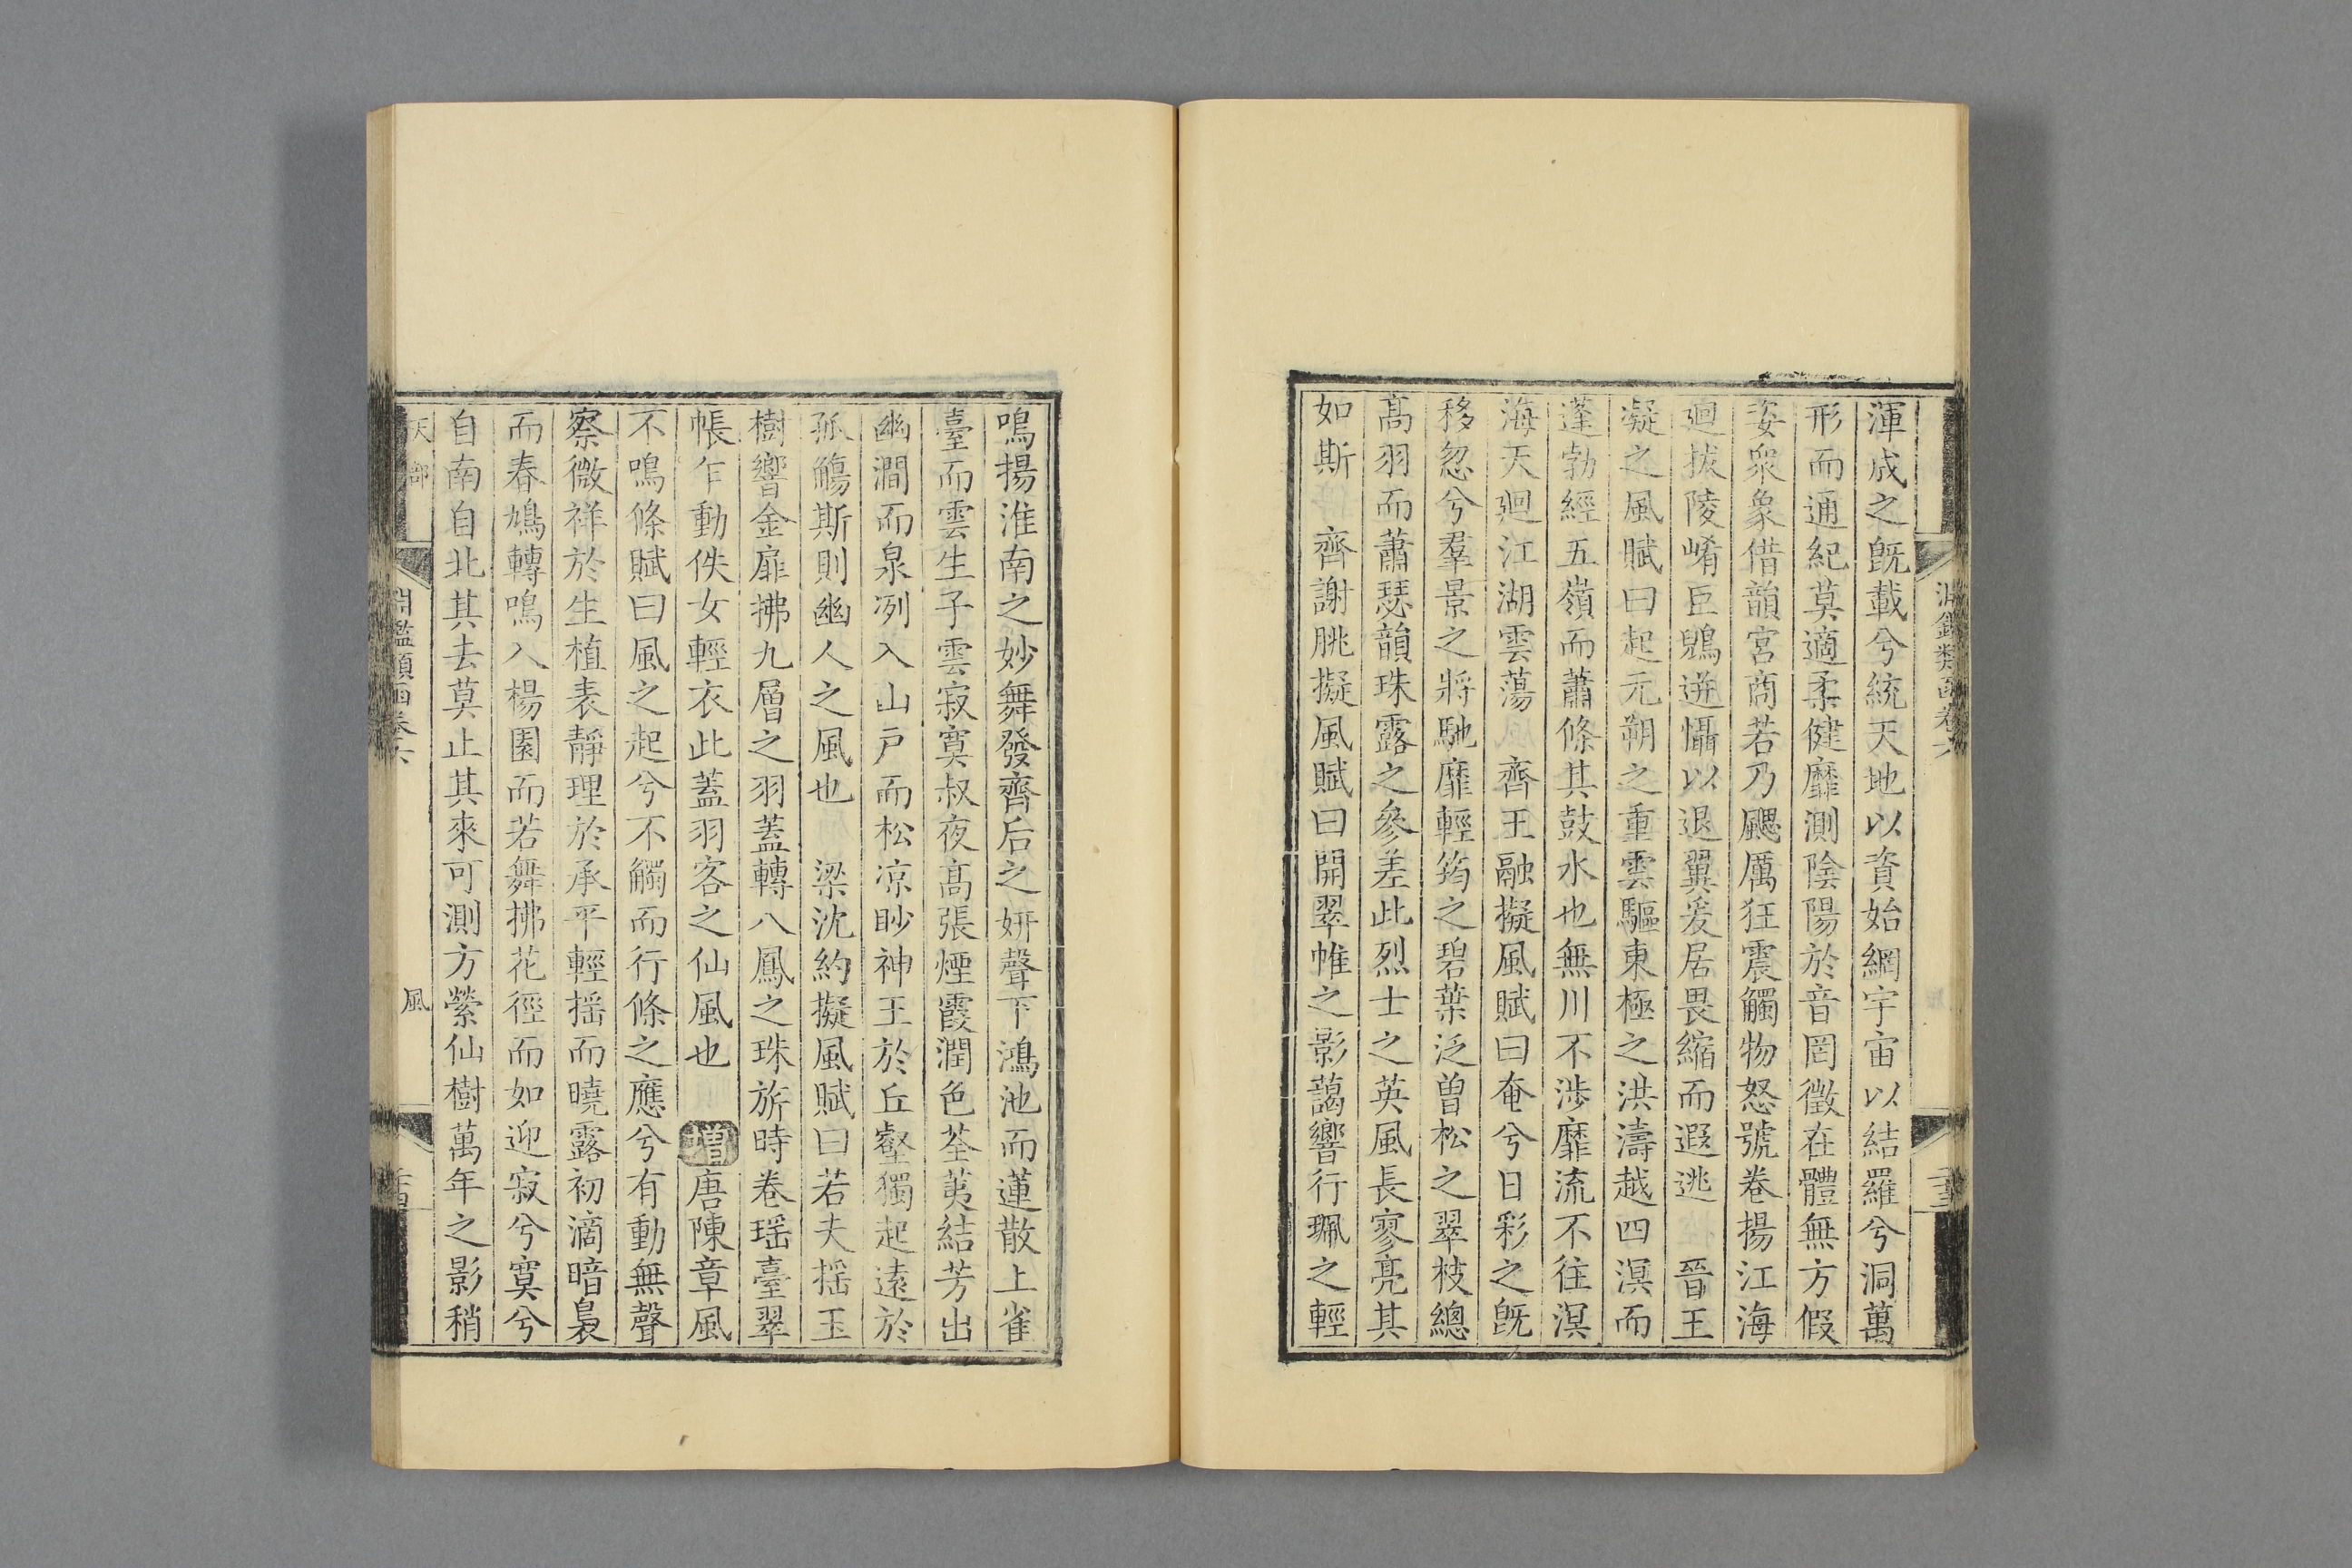 淵鑑類函卷六
渾成之旣載兮統天地以資始綱宇宙以結羅兮洞萬
形而通紀莫適柔健靡測陰陽於音罔徵在體無方假
姿衆象借韻宮商若乃颸厲狂震觸物怒號卷揚江海
廻拔陵崤巨鶂遊懾以退翼爰居畏縮而遐逃　晉王
凝之風賦曰起元朔之重雲驅東極之洪濤越四溟而
蓬勃經五嶺而蕭條其鼓水也無川不涉靡流不往溟
海天廻江湖雲蕩　齊王融擬風賦曰奄兮日彩之旣
移忽兮羣景之將馳靡輕筠之碧葉泛曽松之翠枝總
髙羽而蕭瑟韻珠露之參差此烈士之英風長寥亮其
如斯　齊謝朓擬風賦曰開翠帷之影藹響行珮之輕
鳴揚淮南之妙舞發齊后之妍聲下鴻池而蓮散上雀
臺而雲生子雲寂寞叔夜髙張煙霞潤色荃荑結芳出
幽澗而泉冽入山戸而松凉眇神王於丘壑獨起遠於
孤觴斯則幽人之風也　梁沈約擬風賦曰若夫揺玉
樹響金扉拂九層之羽蓋轉八鳳之珠旂時卷瑶臺翠
帳乍動佚女輕衣此蓋羽客之仙風也　增唐陳章風
不鳴條賦曰風之起兮不觸而行條之應兮有動無聲
察微祥於生植表靜理於承平輕揺而曉露初滴暗裊
而春鳩轉鳴入楊園而若舞拂花徑而如迎寂兮寞兮
自南自北其去莫止其來可測方縈仙樹萬年之影稍
天部
淵鑑類函卷六
風